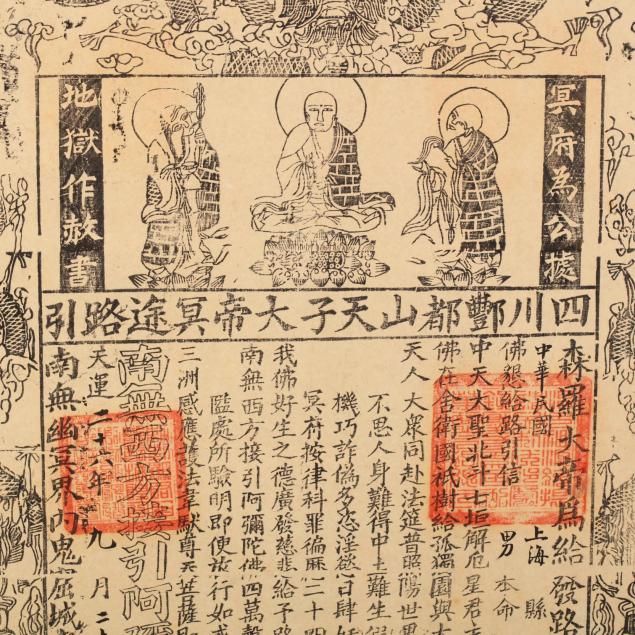 冥府為公據
地獄作赦書
四川酆都山天子大帝冥途路引
森羅大帝為給發路
中華民國 上海縣
佛懇給路引信 男 本命
中天大聖北斗七垣解厄星君
佛在舍衛國祇樹給孤獨園與大
天人大衆同赴法筵普照陽世
不思人身難得中土難生
機巧詐偽多恣淫慾日肆
冥府按律科罪徧歷二十四
我佛好生之德廣發慈悲給予路
南無西方接引阿彌陀佛四萬
監處所驗明即便放行如
三洲感應護法韋馱尊天菩薩
南無西方接引阿
天運二十六年九月二
南無幽冥界內鬼